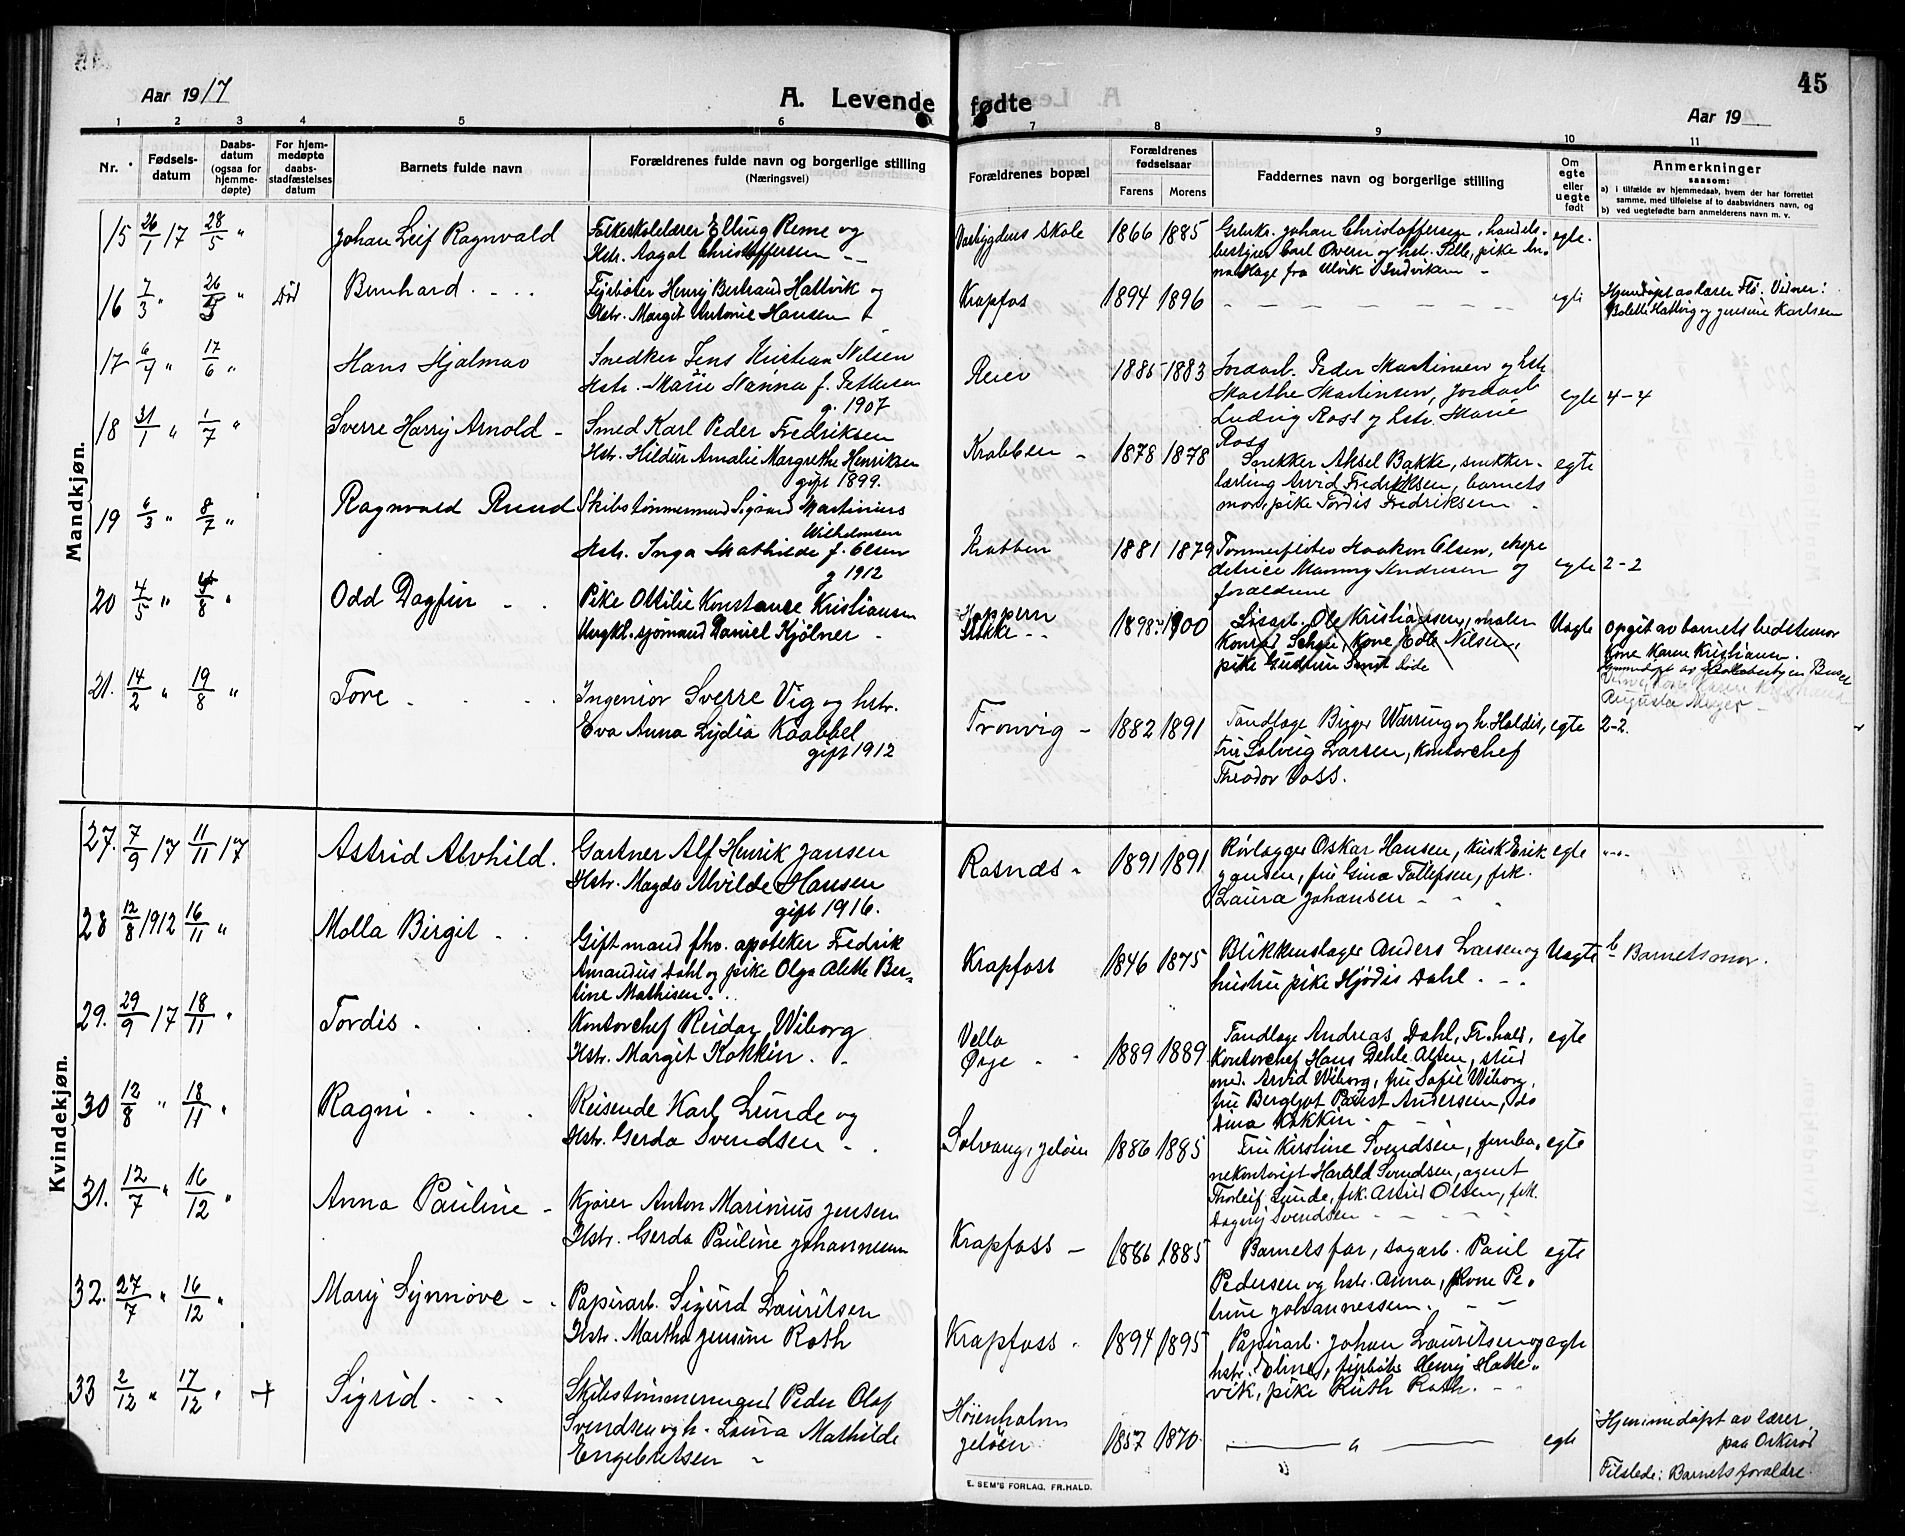 45
Aar 1917
A. Levende fødte
Aar 19
1 2 3 4 5 6 7 8 9 10 11
Nr.
Fødsels-
datum
Daabs-
datum
(ogsaa for
hjemme-
døpte)
For hjem-
medøpte
daabs-
stadfæstelses
datum
Barnets fulde navn
Forældrenes fulde navn og borgerlige stilling
(Næringsvei)
Forældrenes bopæl
Forældrenes
fødselsaar
Farens Morens
Faddernes navn og borgerlige stilling
Om
egte
eller
uegte
født
Anmerkninger
saasom:
a) i tilfælde av hjemmedaab, hvem der har forrettet
samme, med tilføielse af to daabsvidners navn, og
b) ved uegtefødte barn anmelderens navn m. v.
Mandkjøn.
15 26/1 17 28/5 "
Johan Leif Ragnvald
Folkeskolelærer Elling Reme og
Hstr. Aagot Christoffersen
Varbygdens skole
1866 1885
Johan Christoffersen, handels-
bestyrer Carl Oversen og hstr. Sille, pike An-
na Hage fra Ulvik i Indviken -
egte.
16 7/3 " 26/5 " Død
Bernhard
Fyrbøter Henry Bertrand Hattvik og
Hstr. Margit Antonie Hansen
Krapfos
1894 1896
egte
Hjemdøpt av lærer Flø. Vidner:
Bolette Hattvig og Jensine Karlsen
17 6/4 " 17/6 "
Hans Hjalmar
Snedker Jens Kristian Nilsen
Hstr. Marie Nanna f. Pettersen
g. 1907
Reier
1885 1883
Jordarb. Peder Martinsen og hstr.
Marthe Martinsen, Jordarb.
Ludvig Ross og hstr. Marie
Ross
egte 4-4
18 31/1 " 1/7 "
Sverre Harry Arnold -
Smed Karl Peder Fredriksen
Hstr. Hildur Amalie Margrethe Henriksen
gift 1899.
Krabben -
1878 1878
Snekker Aksel Bakke, snekker-
lærling Arvid Fredriksen, barnets
mor, pike Tordis Fredriksen
egte
19 6/3 " 8/7 "
Ragnvald Ruud
Skibstømmermand Sigvard Martinius
Wilhelmsen
Hstr. Inga Mathilde f. Olsen
g 1912
Krabben
1881 1879
Tømmerfløter Haakon Olsen, ekspe
ditrice Mammy Andresen og
forældrene
egte 2-2
20 4/5 " /8 "
Odd Dagfin - .
Pike Ottilie Konstance Kristiansen
Ungkl. sjømand Daniel Kjølner -
Hoppern
1898 1900
Løsarb. Ole Kristiansen, maler
Konrad Schau, Kone Edle Nilsen,
pike Gudrun
Uegte
Opgit av barnets bedstemor
Kone Karen Kristiansen.
Augusta Meyer -
21. 14/2 " 19/8 "
Tore
Ingeniør Sverre Vig og hstr.
Eva Anna Lydia Kaabbel
gift 1912
Tronvig -
1882 1891
Tandlæge Birger Warring og h. Haldis,
Fru Solveig Larsen, Kontorchef
Theodor Voss.
egte 2-2.
Kvindekjøn.
27. 7/9 17 11/11 17
Astrid Alvhild.
Gartner Alf Henrik Jansen
Hstr. Magda Alvilde Hansen
gift 1916.
Rosnæs -
1891 1891
Rørlægger Oskar Hansen, kusk Erik
Jansen, fru Gina Tollefsen, frk.
Laura Johansen
egte
28 12/8 1912 16/11 "
Molla Birgit -
Gift mand fhv. apoteker Fredrik
Amandus Dahl og pike Olga Alette Ber-
tine Mathisen.
Krapfoss
1846 1875
Blikkenslager Anders Larsen og
hustru pike Hjødis Dahl.
Uegte b- Barnets mor.
29. 29/9 17 18/11 "
Tordis
Kontorchef Reidar Wiborg
Hstr. Margit Kokkin.
Vella
Ørje
1889 1889
Tandlæge Andreas Dahl, Fr.hald,
Kontorchef Hans Dehle Olsen, stud
med. Arvid Wiborg, fru Sofie Wiborg,
fru Bergljot Paust Andersen, do
Dina Kokkin -
egte
30 12/8 " 18/11 "
Ragni
Reisende Karl Lunde og
Hstr. Gerda Svendsen
Solvang, Jeløen
1886 1885
Fru Kirstine Svendsen, jernba-
nekontorist Harald Svendsen, agent
Thorleif Lunde, frk. Astrid Olsen, frk.
Dagny Svendsen
egte
31. 12/7 " 16/12 "
Anna Pauline -
Kjører Anton Marinius Jensen
Hstr. Gerda Pauline Johannesen
Krapfoss -
1886 1885
Barnets far, sagarb. Paul
Pedersen og hstr. Anna, Kone Pe-
trine Johannessen.
egte
32. 27/7 " 16/12 "
Mary Synnøve -
Papirarb. Sigurd Lauritsen
Hstr. Martha Jensine Roth
Krapfoss -
1894 1895
Papirarb. Johan Lauritsen og
hstr. Oline, fyrbøter Henry Hatte-
vik, pike Ruth Roth.
egte
33 2/12 " 17/12 " +
Sigrid.
Skibstømmermand Peder Olaf
Svendsen og h. Laura Mathilde
Engebretsen -
Høienholm
Jeløen
1857 1870
egte
Hjemmedøpt av lærer
paa Orkerød
Tilstede: Barnets forældre.
E. SEM'S FORLAG, FR.HALD.